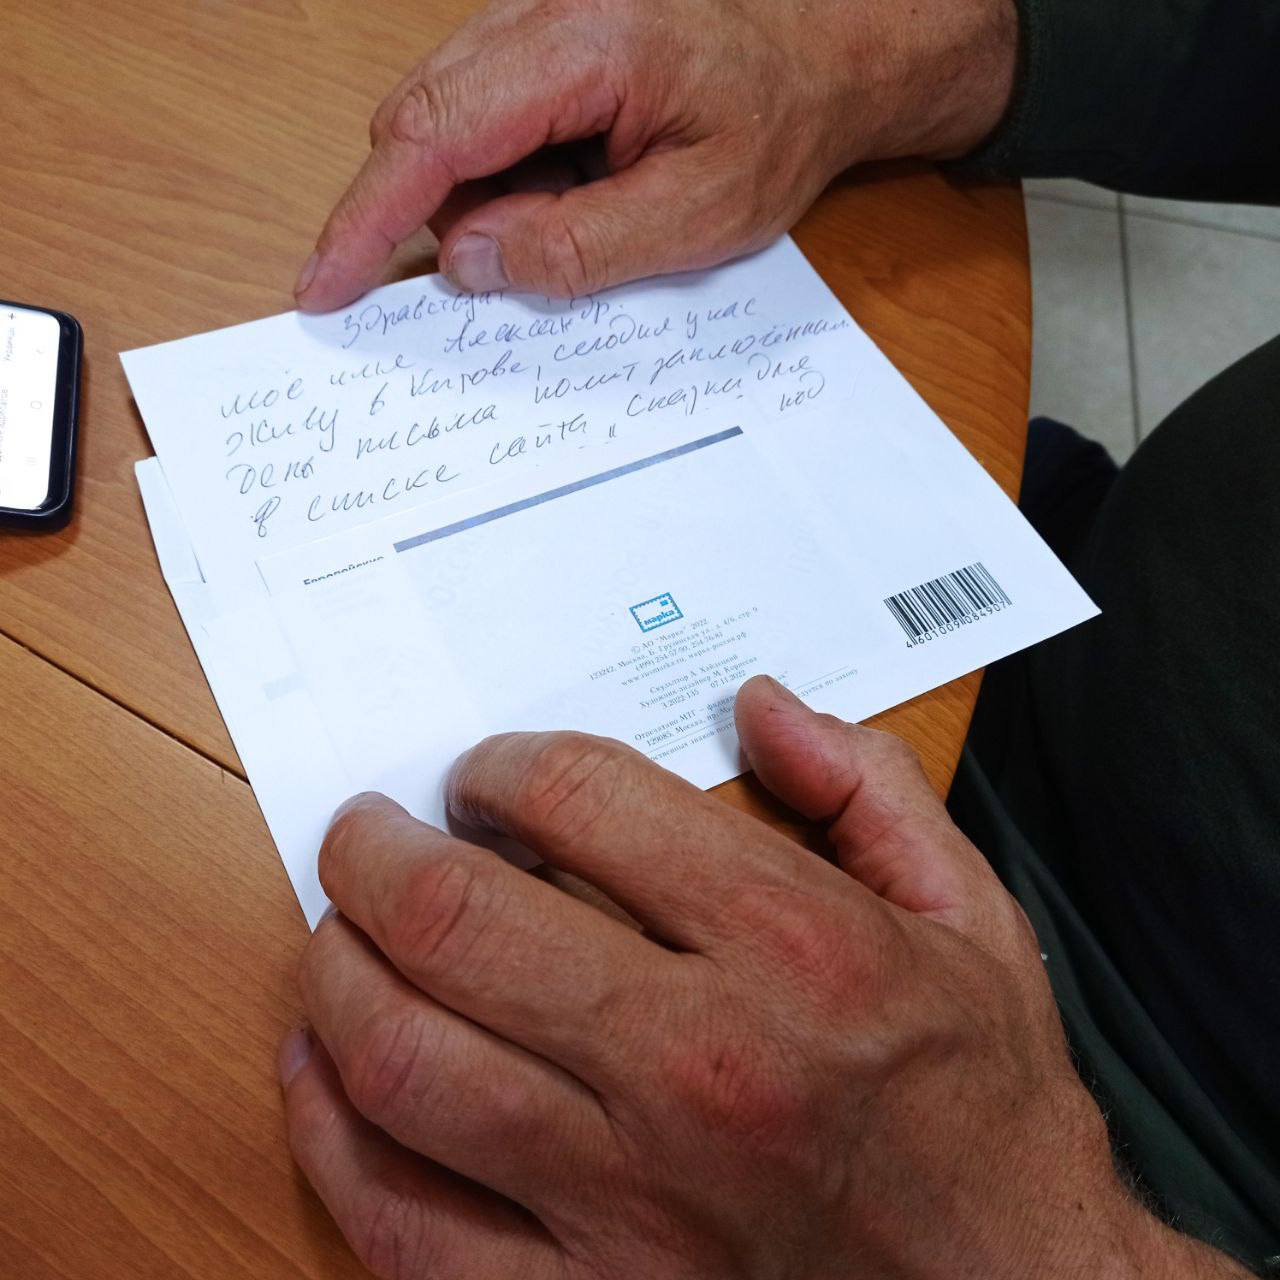 Здравствуй
моё имя Александр.
живу в Кирове, сегодня у нас
день письма полит заключённым.
В списке сайта "Сказки для
под
Европейские
марка
© АО "Марка" 2022
123242, Москва, Б. Грузинская ул., д. 4/6, стр. 9
(499) 254-57-90, 254-76-83
www.rusmarka.ru, марка-россии.рф
Скульптор А. Хайдецкий
Художник-дизайнер М. Корнеева
З.2022-145 07.11.2022
Отпечатано МТГ – филиал
129085, Москва, пр.
4601009084907